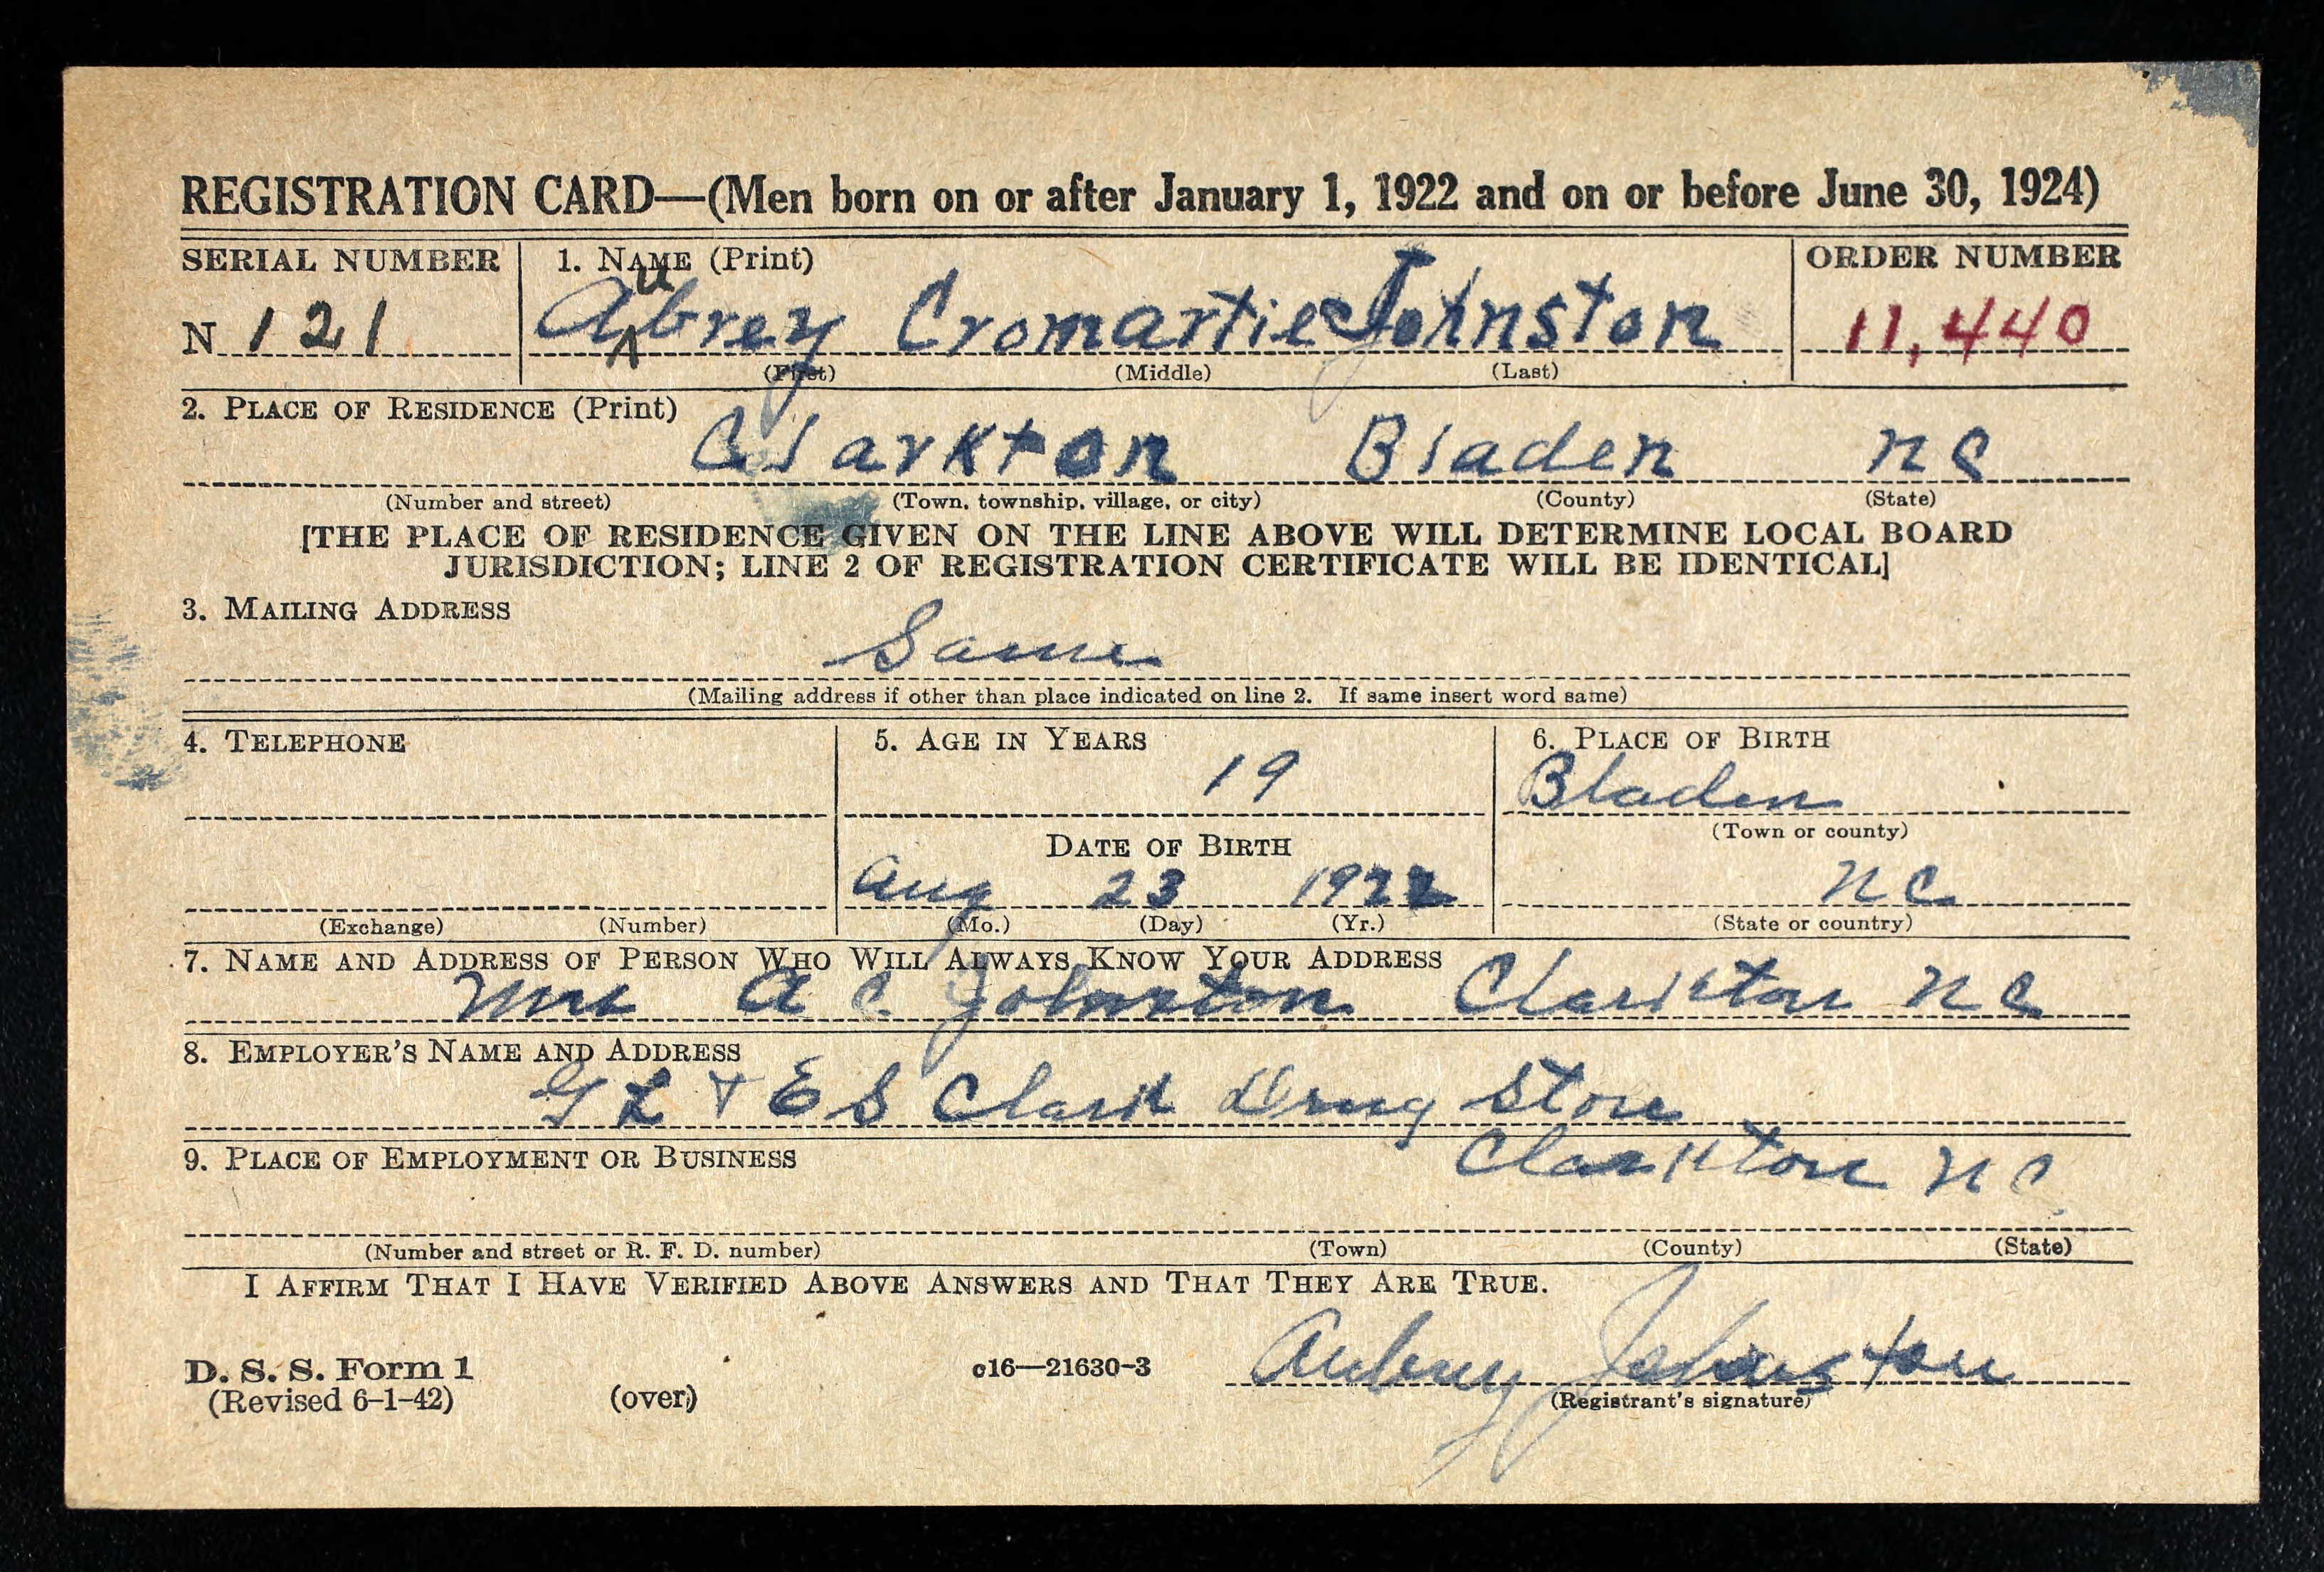 REGISTRATION CARD—(Men born on or after January 1, 1922 and on or before June 30, 1924)
SERIAL NUMBER 1. NAME (Print) ORDER NUMBER
N 121 Aubrey Cromartie Johnston 11,440
(First) (Middle) (Last)
2. PLACE OF RESIDENCE (Print)
Clarkton Bladen NC
(Number and street) (Town, township, village, or city) (County) (State)
[THE PLACE OF RESIDENCE GIVEN ON THE LINE ABOVE WILL DETERMINE LOCAL BOARD
JURISDICTION; LINE 2 OF REGISTRATION CERTIFICATE WILL BE IDENTICAL]
3. MAILING ADDRESS
Same
(Mailing address if other than place indicated on line 2. If same insert word same)
4. TELEPHONE 5. AGE IN YEARS 6. PLACE OF BIRTH
19 Bladen
(Town or county)
DATE OF BIRTH
Aug 23 1922 NC
(Exchange) (Number) (Mo.) (Day) (Yr.) (State or country)
7. NAME AND ADDRESS OF PERSON WHO WILL ALWAYS KNOW YOUR ADDRESS
Mrs A C Johnston Clarkton NC
8. EMPLOYER'S NAME AND ADDRESS
G L & E S Clark Drug Store
9. PLACE OF EMPLOYMENT OR BUSINESS
Clarkton NC
(Number and street or R. F. D. number) (Town) (County) (State)
I AFFIRM THAT I HAVE VERIFIED ABOVE ANSWERS AND THAT THEY ARE TRUE.
D. S. S. Form 1 c16—21630-3 Aubrey Johnston
(Revised 6-1-42) (over) (Registrant's signature)